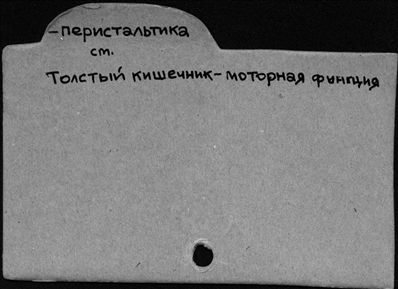 -перистальтика
см.
Толстый кишечник-моторная функция